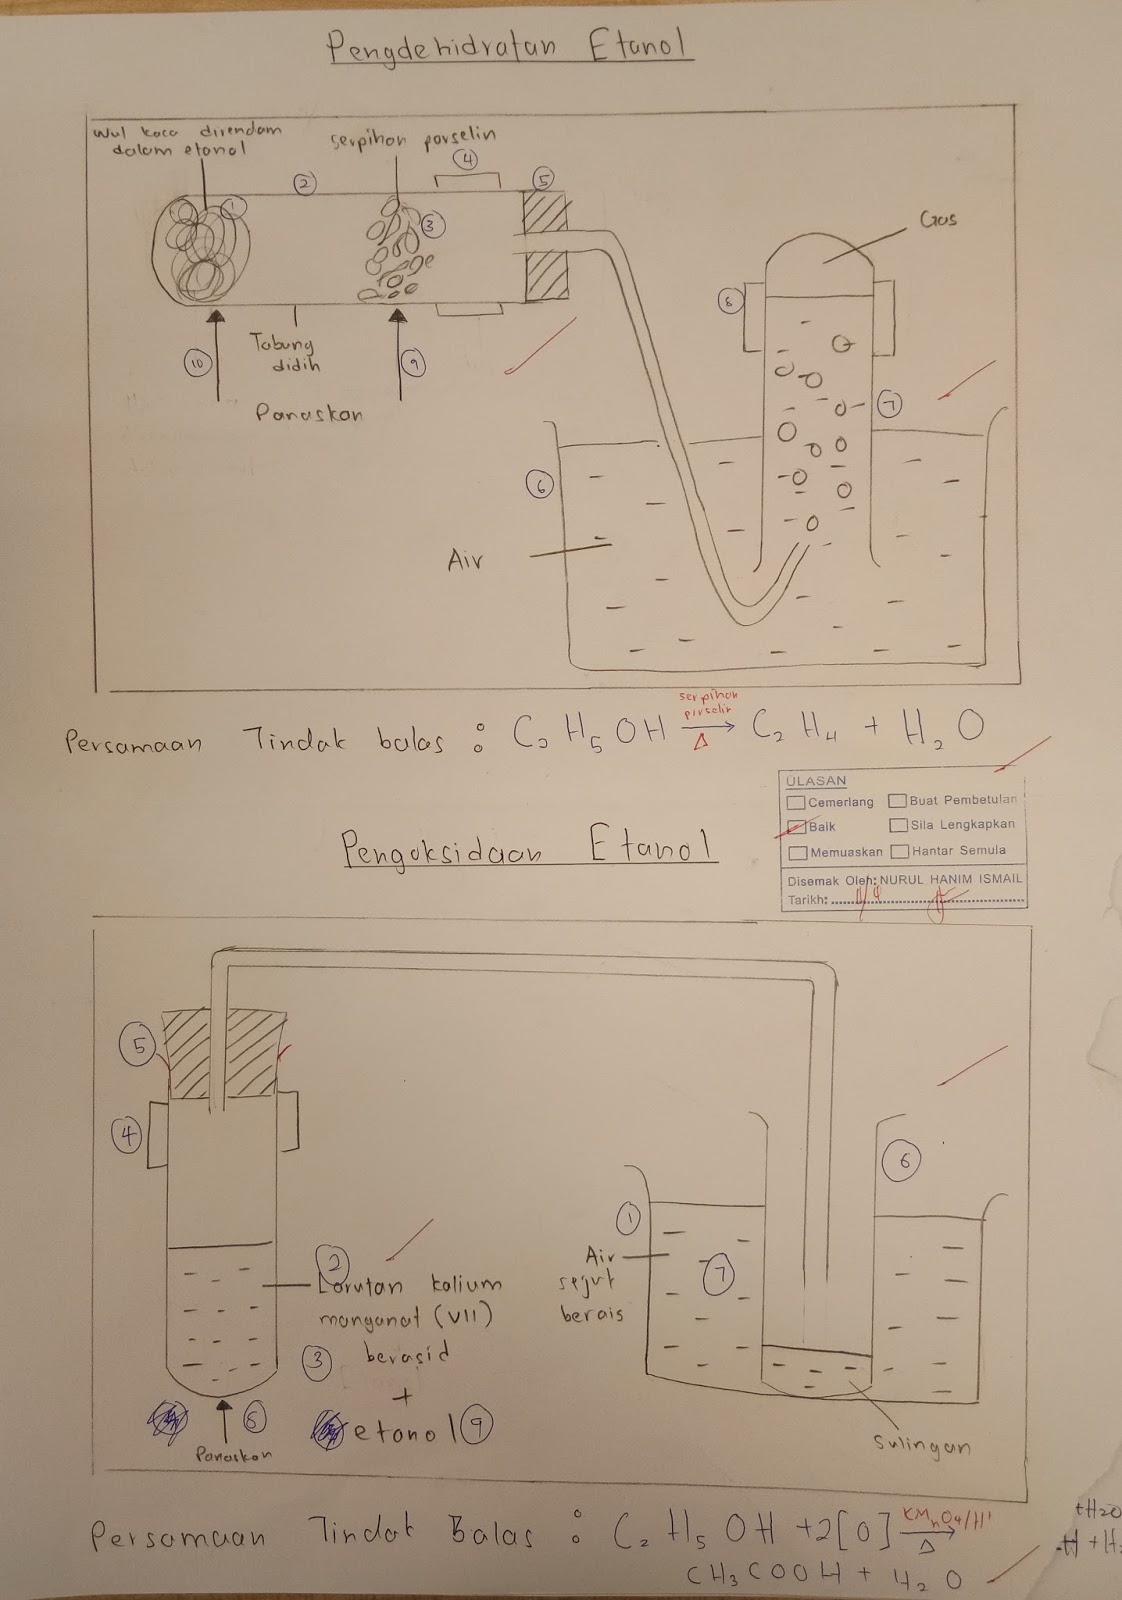 Pengdehidratan Etanol
Wul kaca direndam
dalam etanol
serpihan porselin
1
2
3
4
5
Gas
8
7
Tabung
didih
10
9
Panaskan
6
Air
serpihan
Persamaan Tindak balas : C2 H5 OH → C2 H4 + H2 O
Δ
ULASAN
Cemerlang Buat Pembetulan
Baik Sila Lengkapkan
Memuaskan Hantar Semula
Disemak Oleh: NURUL HANIM ISMAIL
Tarikh:
Pengoksidaan Etanol
5
4
6
1
2
Larutan kalium
manganat (VII)
3 berasid
+
etanol 9
8
Panaskan
Air
sejut
berais
7
Sulingan
KMnO4/H+
Persamaan Tindak Balas : C2 H5 OH + 2[O] →
Δ
CH3COOH + H2O
+H2O